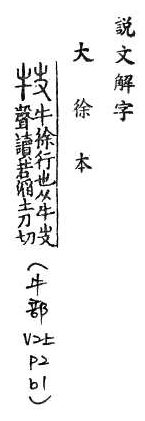 説文解字
大徐本
牛徐行也从牛𠬢
聲讀若滔土刀切
(牛部 V2上 P2 b1)